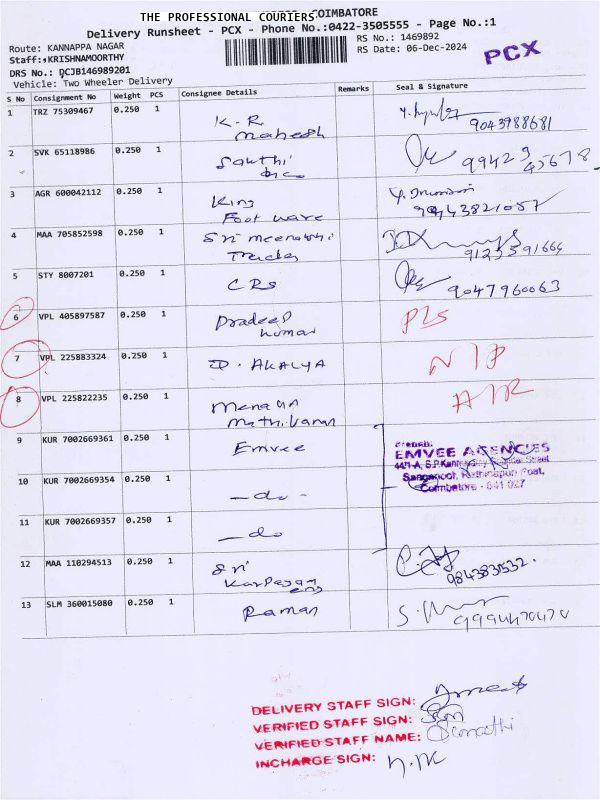 THE PROFESSIONAL COURIERS COIMBATORE
Delivery Runsheet - PCX - Phone No.:0422-3505555 - Page No.:1
Route: KANNAPPA NAGAR
RS No.: 1469892
Staff: KRISHNAMOORTHY
RS Date: 06-Dec-2024
PCX
DRS No.: DCJB146989201
Vehicle: Two Wheeler Delivery
S No Consignment No Weight PCS Consignee Details Remarks Seal & Signature
1 TRZ 75309467 0.250 1 K.R mahesh 9043988681
2 SVK 65118986 0.250 1 Santhi 99423 45678
3 AGR 600042112 0.250 1 King Foot ware 9443821057
4 MAA 705852598 0.250 1 Sri meenatchi Trades 9123591664
5 STY 8007201 0.250 1 CRS 9047960063
6 VPL 405897587 0.250 1 Pradeep kumar
7 VPL 225883324 0.250 1 D. AKALYA
8 VPL 225822235 0.250 1
9 KUR 7002669361 0.250 1 Emvee
EMVEE AGENCIES
44/1-A, S.P.
Coimbatore - 641 027
10 KUR 7002669354 0.250 1 -do-
11 KUR 7002669357 0.250 1 -do
12 MAA 110294513 0.250 1 Sri Karpagam eng 9843835532.
13 SLM 360015080 0.250 1 Raman 9994470470
DELIVERY STAFF SIGN:
VERIFIED STAFF SIGN:
VERIFIED STAFF NAME:
INCHARGE SIGN: